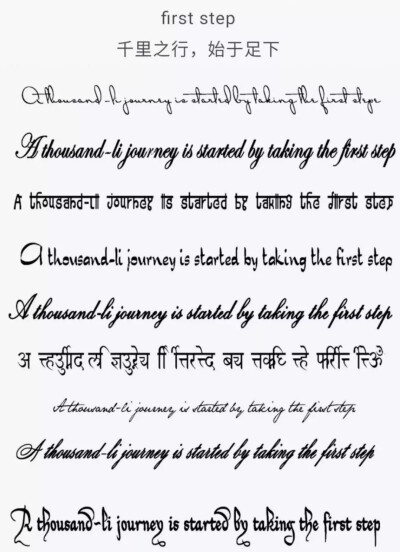 first step
千里之行，始于足下
A thousand-li journey is started by taking the first step
A thousand-li journey is started by taking the first step
A thousand-li journey is started by taking the first step
A thousand-li journey is started by taking the first step
A thousand-li journey is started by taking the first step
A thousand-li journey is started by taking the first step
A thousand-li journey is started by taking the first step
A thousand-li journey is started by taking the first step